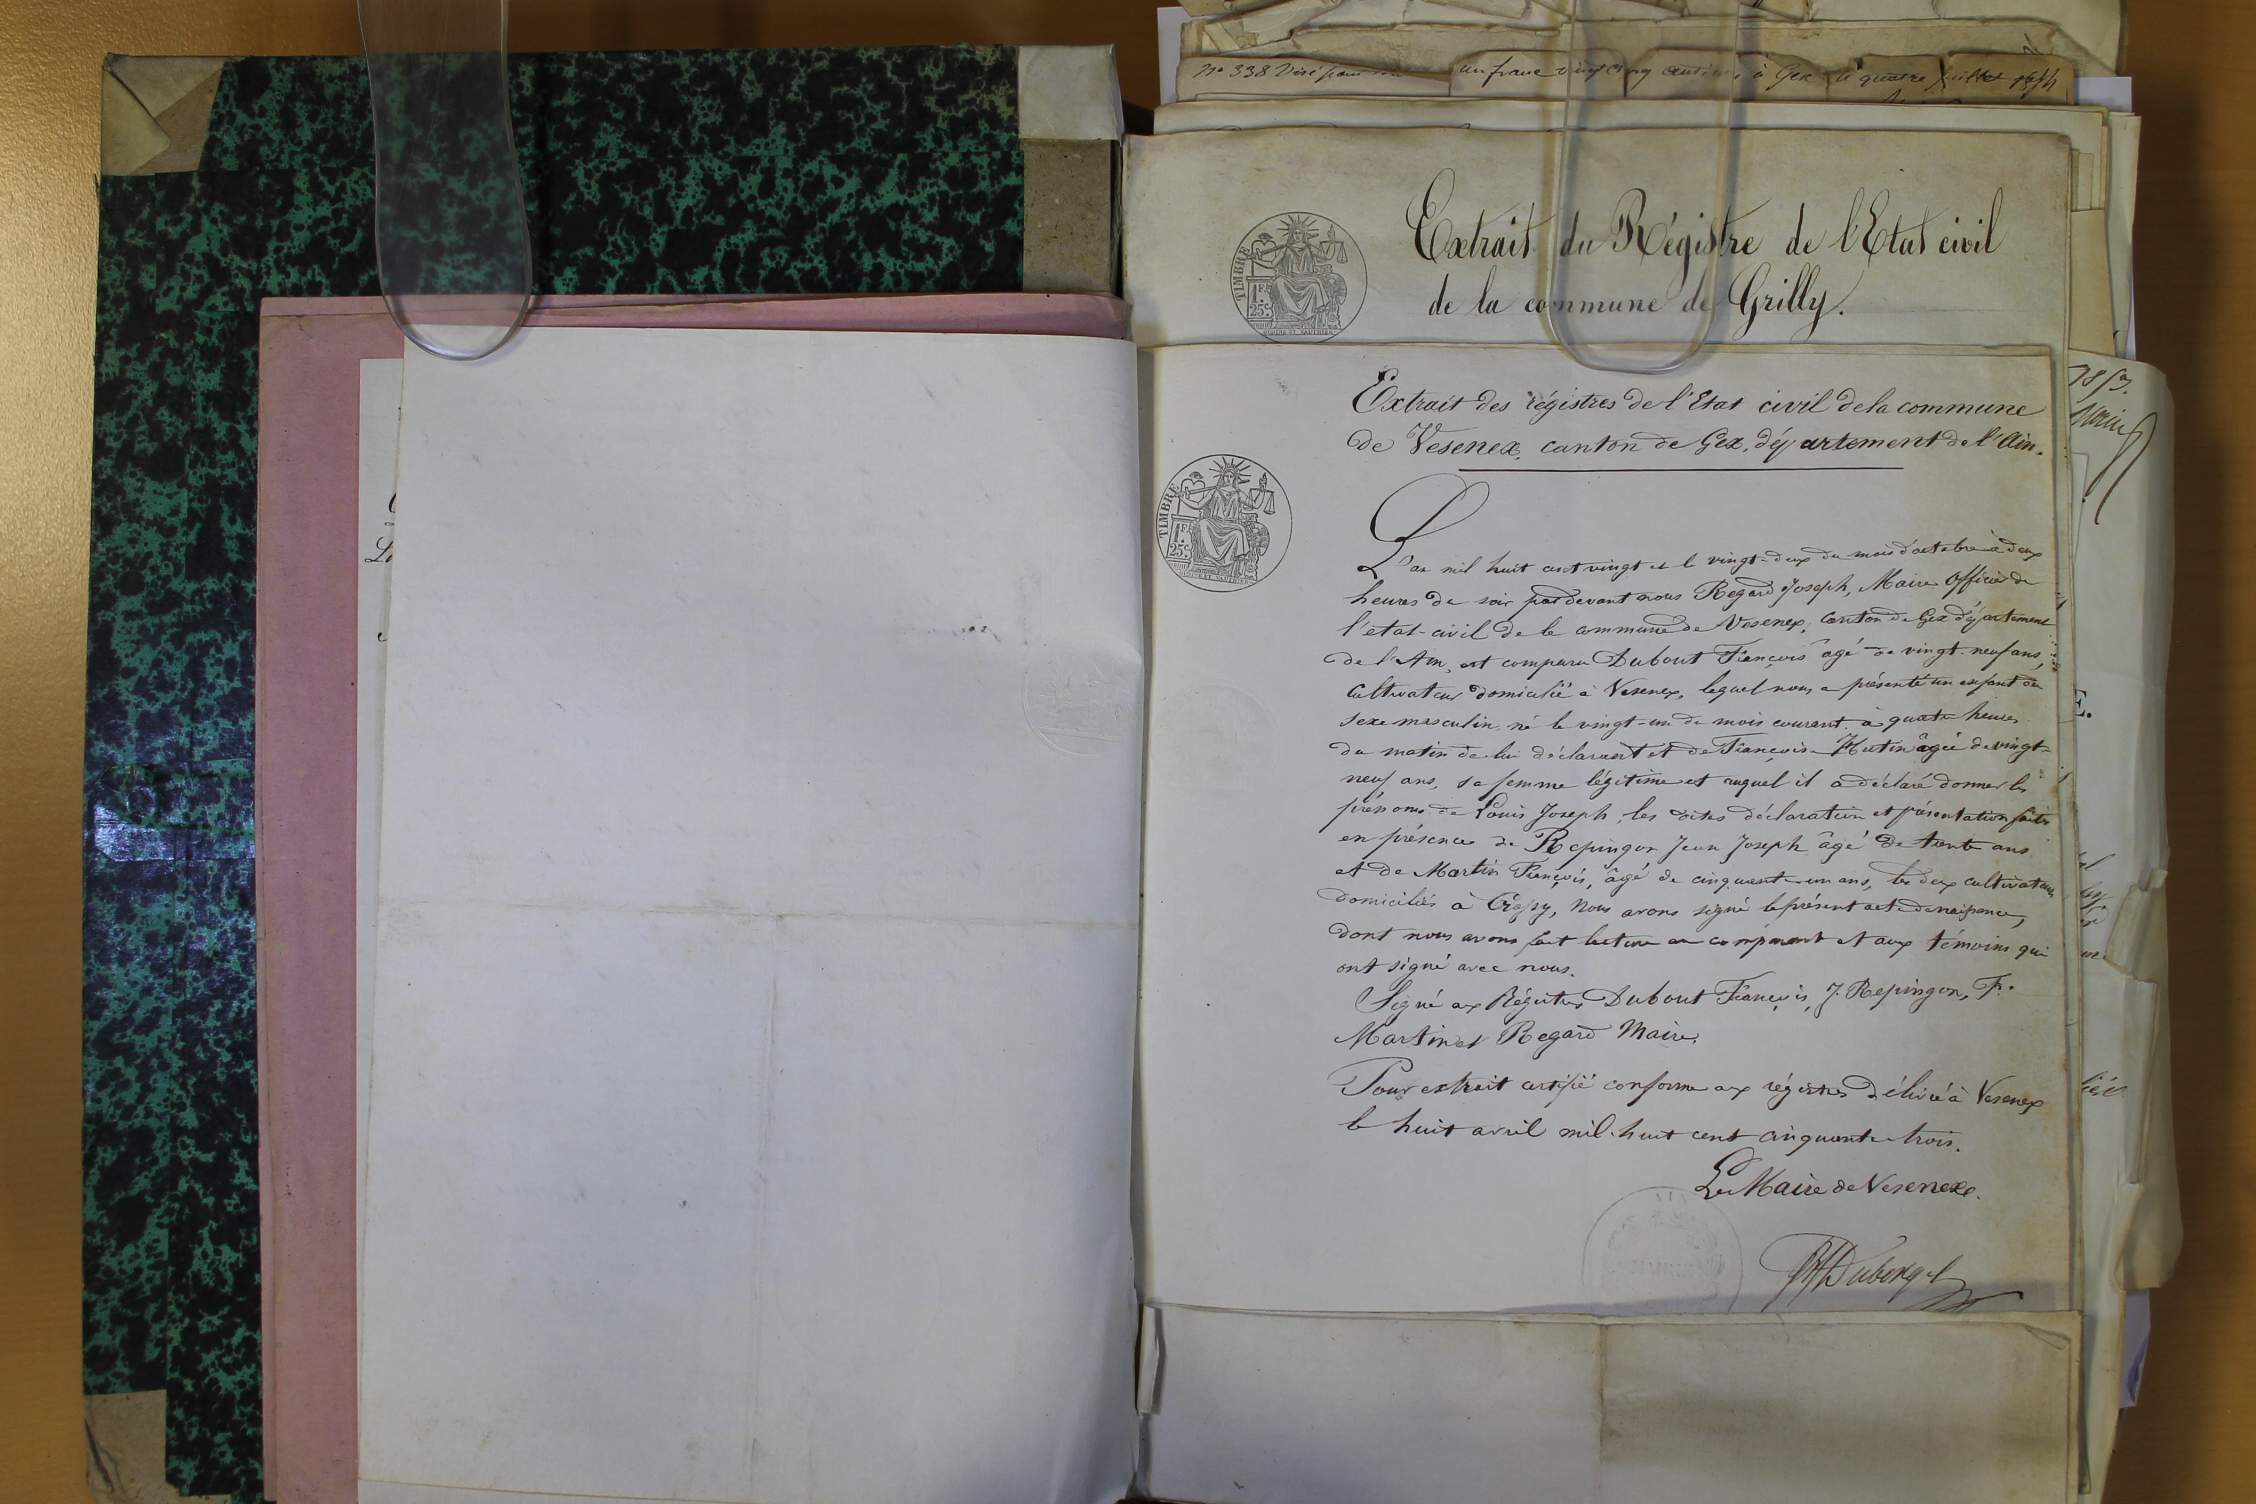 N° 338 Visé pour un franc vingt cinq centimes à Gex le quatre juillet
Extrait du Régistre de l'Etat civil
de la commune de Grilly.
TIMBRE
1 F.
25 c.
Extrait des régistres de l'Etat civil de la commune
de Vesenex, canton de Gex, département de l'Ain.
TIMBRE
1 F.
25 c.
L'an mil huit cent vingt et le vingt-deux du mois d'octobre à deux
heures du soir pardevant nous Regard Joseph, Maire Officier de
l'état-civil de la commune de Vesenex, canton de Gex département
de l'Ain, est comparu Dubout François âgé de vingt-neuf ans,
Cultivateur domicilié à Vesenex, lequel nous a présenté un enfant du
sexe masculin, né le vingt-un du mois courant à quatre heures
du matin de lui déclarant et de Françoise Hutin âgée de vingt-
neuf ans, sa femme légitime et auquel il a déclaré donner les
prénoms de Louis Joseph, les dites déclaration et présentation faites
en présence de Repingon Jean Joseph âgé de trente ans
et de Martin François, âgé de cinquante-un ans, les deux cultivateurs
domiciliés à Crassy, Nous avons signé le présent acte de naissance,
dont nous avons fait lecture au comparant et aux témoins qui
ont signé avec nous.
Signé aux Régistres Dubout François, J. Repingon, F.
Martin et Regard Maire.
Pour extrait certifié conforme aux régistres délivré à Vesenex
le huit avril mil-huit cent cinquante-trois.
Le Maire de Vesenex.